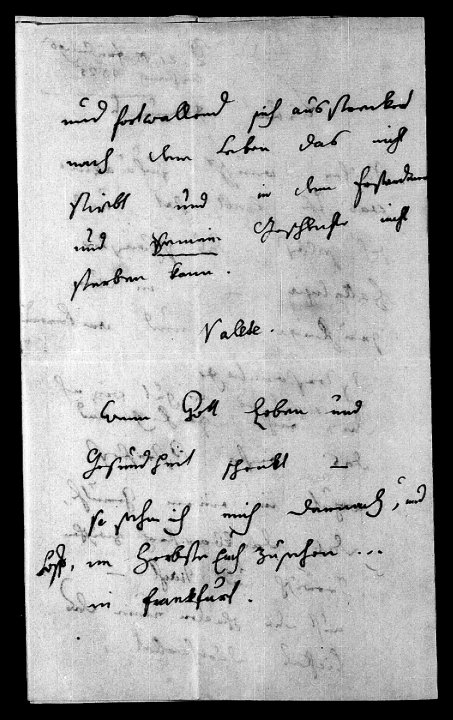 und fortwallend sich ausstrecket
nach dem Leben das nicht
stirbt und in dem
und Geschlechte nicht
sterben kann.
Valete.
wenn Gott Leben und
Gesundheit schenkt –
so sehn ich mich darnach, und
hoffe, im Herbste Euch zusehen ...
in Frankfurt.